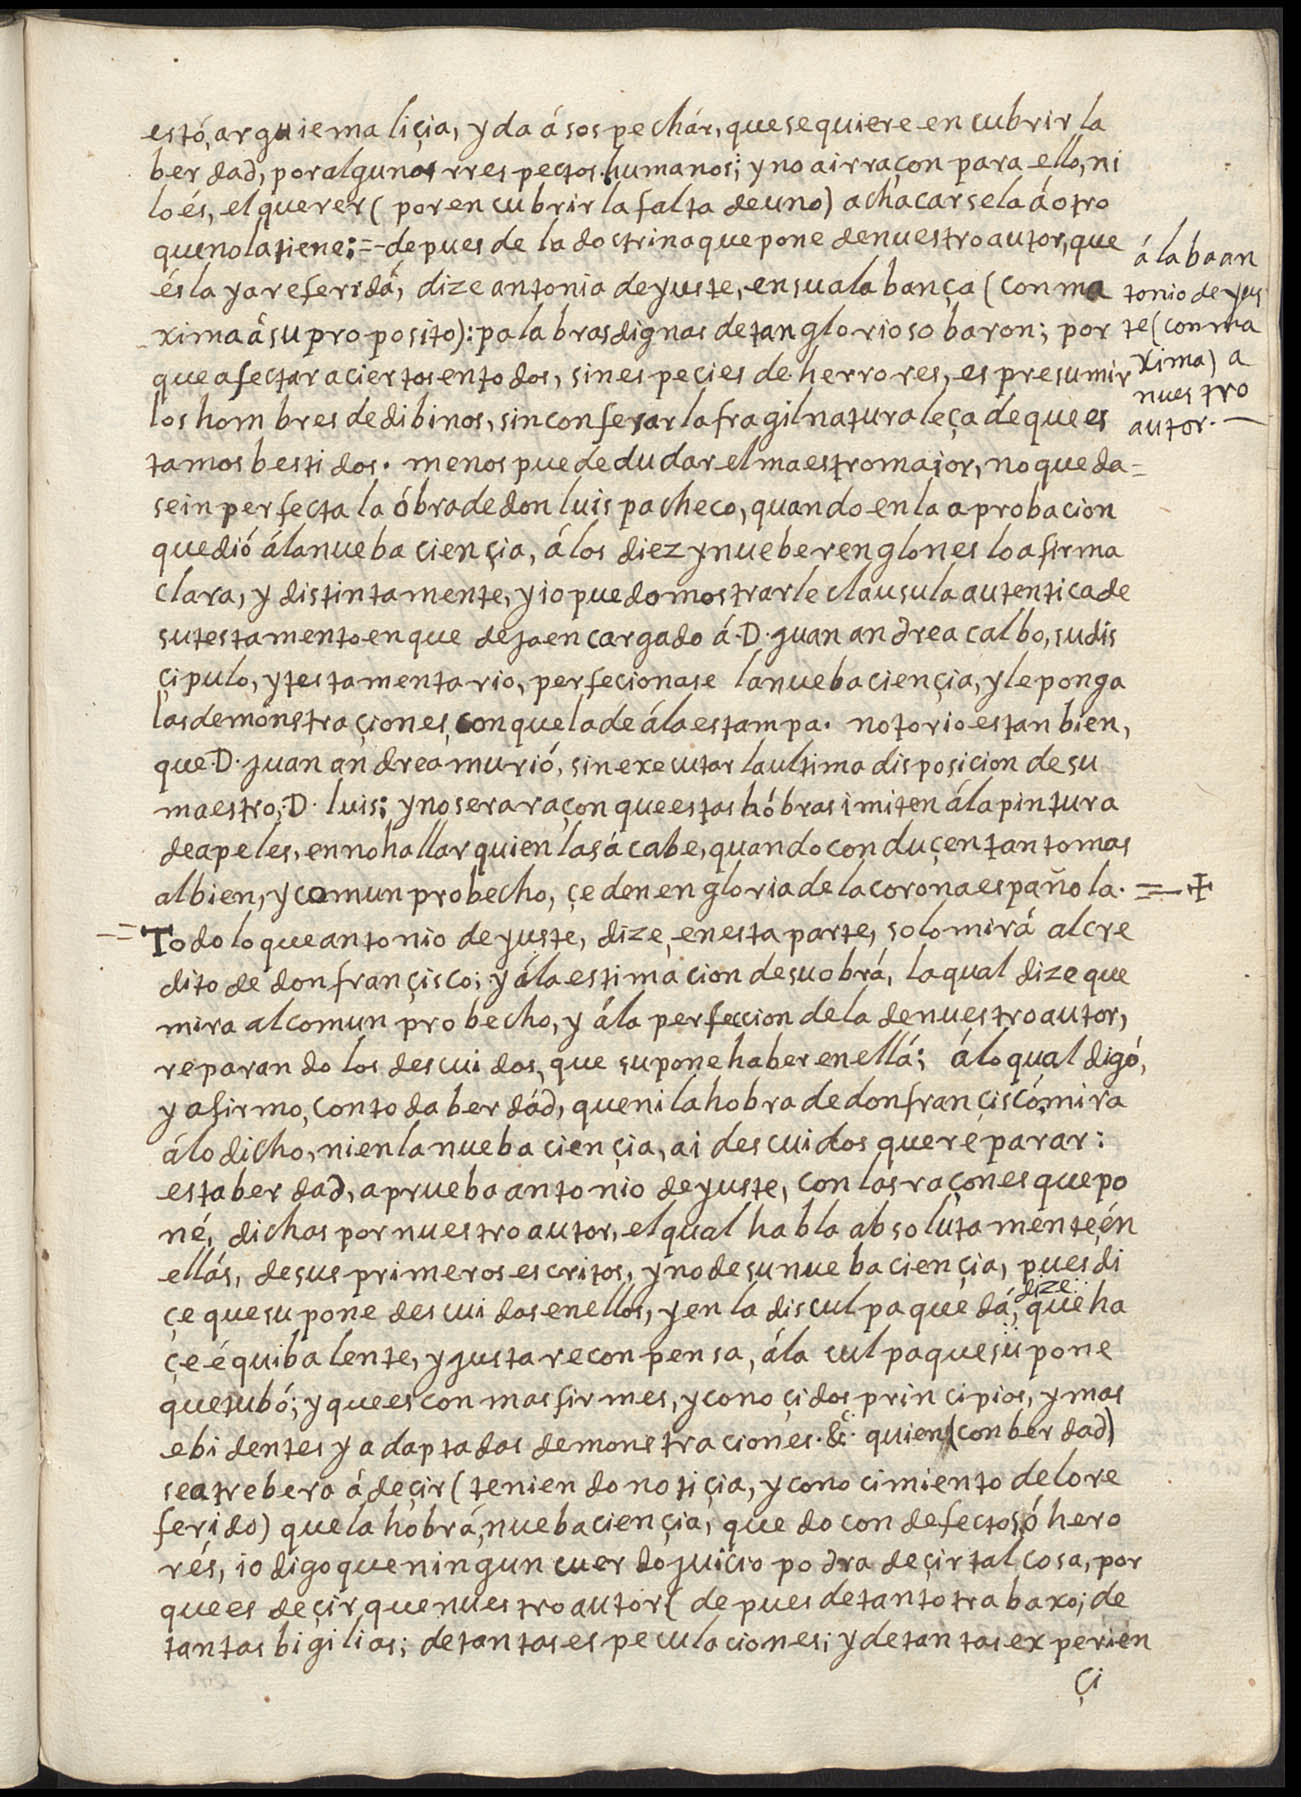 estó, arguie maliçia, y da á sospechár, que se quiere encubrir la
berdad, por algunos rrespectos humanos; y no ai rraçon para ello, ni
lo és, el querer (por encubrir la falta de uno) achacarsela á otro
que no la tiene: =- depues de la doctrina que pone de nuestro autor, que
és la ya referidá, dize antonia de yuste, en su alabança (con ma
xima á su proposito): palabras dignas de tan glorioso baron; por
que afectar aciertos en todos, sin especies de herrores, es presumir
los hombres de dibinos, sin confesar la fragil naturaleça de que es
tamos bestidos. menos puede dudar el maestro maior, no queda=
se inperfecta la óbra de don luis pacheco, quando en la aprobacion
que dió á la nueba ciençia, á los diez y nuebe renglones lo afirma
clara, y distintamente, y io puedo mostrarle clausula autentica de
su testamento en que deja encargado á. D. juan andrea calbo, su dis
çipulo, y testamentario, perfecionase la nueba ciençia, y le ponga
las demonstraçiones, con que la de á la estampa. notorio es tanbien,
que. D. juan andrea murió, sin executar la ultima disposicion de su
maestro, D. luis; y no sera raçon que estas hóbras imiten á la pintura
de apeles, en no hallar quien las ácabe, quando conduçen tanto mas
al bien, y comun probecho, çeden en gloria de la corona española. =-✝
-= Todo lo que antonio de yuste, dize, en esta parte, solo mirá al cre
dito de don françisco; y á la estimacion de su obrá, la qual dize que
mira al comun probecho, y á la perfeccion de la de nuestro autor,
reparando los descuidos, que supone haber en ellá; á lo qual digó,
y afirmo, con toda berdád, que ni la hobra de don françiscó, mira
á lo dicho, ni en la nueba ciençia, ai descuidos que reparar:
esta berdad, aprueba antonio de yuste, con las raçones que po
né, dichas por nuestro autor, el qual habla absolutamente, én
ellás, de sus primeros escritos, y no de su nueba ciençia, pues di
çe que supone descuidos en ellos, y en la disculpa que dá, dize: que ha
çe équibalente, y justa reconpensa, á la culpa que supone
que tubó; y que es con mas firmes, y conoçidos principios, y mas
ebidentes y adaptadas demonstraciones. &c. quien (con berdad)
se atrebera á deçir (teniendo notiçia, y conocimiento de lo re
ferido) que la hobrá, nueba ciençia, quedo con defectos, ó hero
rés, io digo que ningun cuerdo juicio podra deçir tal cosa, por
que es deçir que nuestro autor (depues de tanto trabaxo; de
tantas bigilias; de tantas especulaciones; y de tantas experien
çi
álaba an
tonio de yus
te (con ma
xima) a
nuestro
autor. —